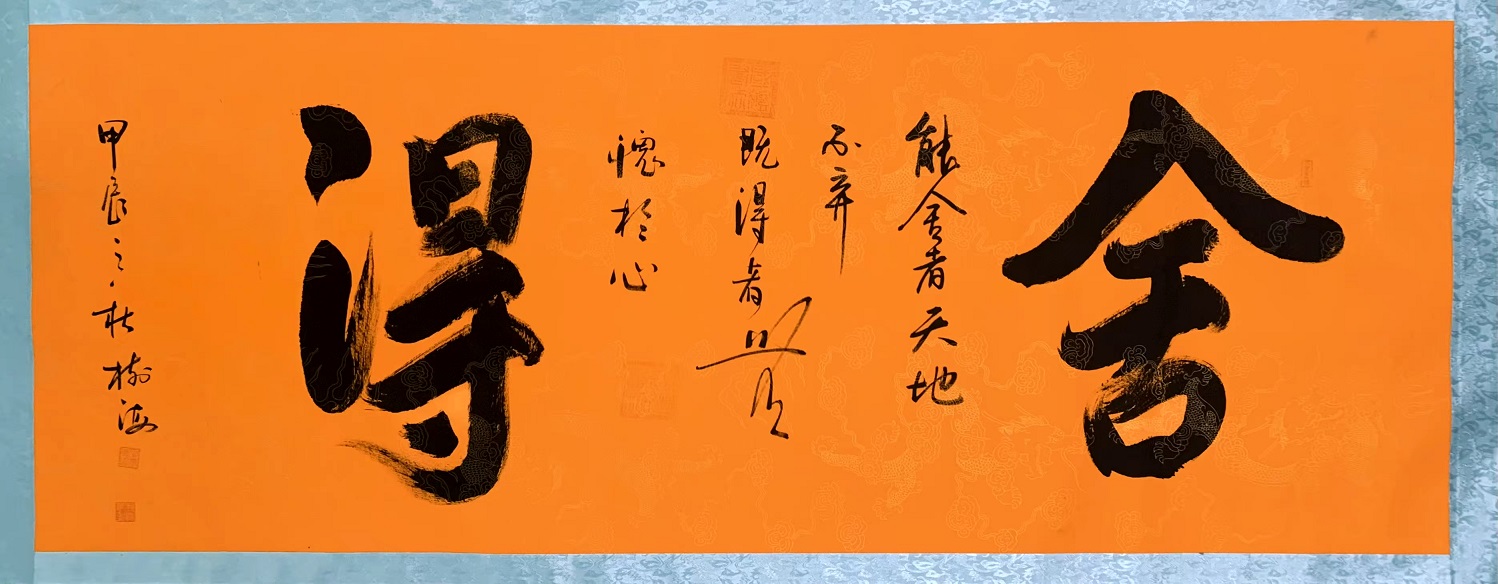 舍
能舍者天地
不弃
既得者
愧於心
得
甲辰之
樹海